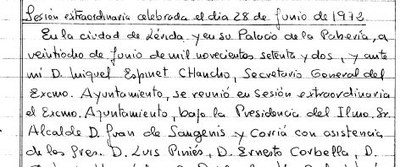 Sesión extraordinaria celebrada el día 28 de Junio de 1972
En la ciudad de Lérida y en su Palacio de la Pahería, a
veintiocho de Junio de mil novecientos setenta y dos, y ante
mi D. Miquel Espinet Chancho, Secretario General del
Excmo. Ayuntamiento, se reunió en sesión extraordinaria
el Excmo. Ayuntamiento, bajo la Presidencia del Ilmo. Sr.
Alcalde D. Juan de Sangenis y Corriá con asistencia
de los Sres. D. Luis Pinies, D. Ernesto Corbella, D.